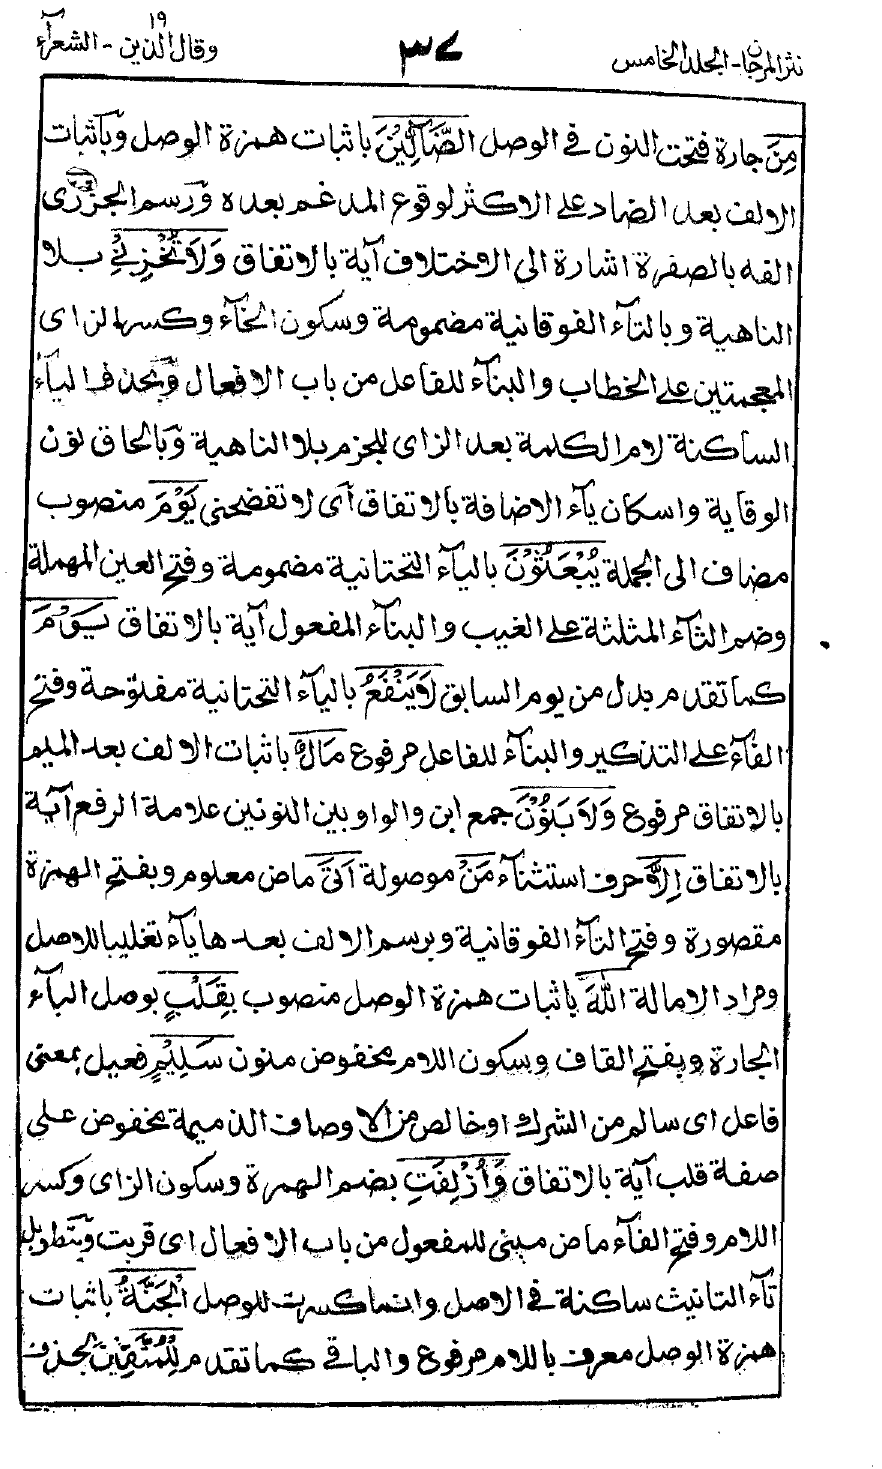 نثر المرجان - المجلد الخامس
٣٧
وقال الذين ١٩ - الشعرآء
مِنَ جارة فتحت النون فى الوصل الضَّآلِّيْنَ باثبات همزة الوصل وبآثبات
الالف بعد الضاد على الاكثر لوقوع المدغم بعده ورسم الجزرى
الفه بالصفرة اشارة الى الاختلاف آية بالاتفاق وَلَا تُخْزِنِيْ بلا
الناهية وبالتآء الفوقانية مضمومة وسكون الخآء وكسر الزاى
المعجمتين على الخطاب والبنآء للفاعل من باب الافعال وبحذف اليآء
الساكنة لام الكلمة بعد الزاى للجزم بلا الناهية وبالحاق نون
الوقاية واسكان يآء الاضافة بالاتفاق آى لا تفضحنى يَوْمَ منصوب
مضاف الى الجملة يُبْعَثُوْنَ باليآء التحتانية مضمومة وفتح العين المهملة
وضم الثآء المثلثة على الغيب والبنآء للمفعول آية بالاتفاق يَوْمَ
كما تقدم بدل من يوم السابق لَا يَنْفَعُ باليآء التحتانية مفتوحة وفتح
الفآء على التذكير والبنآء للفاعل مرفوع مَالٌ باثبات الالف بعد الميم
بالاتفاق مرفوع وَلَا بَنُوْنَ جمع ابن والواو بين النونين علامة الرفع آية
بالاتفاق اِلَّا حرف استثنآء مَنْ موصولة اَتَى ماض معلوم وبفتح الهمزة
مقصورة وفتح التآء الفوقانية وبرسم الالف بعدها يآء تغليبا للاصل
ومراد الامالة اللهَ باثبات همزة الوصل منصوب بِقَلْبٍ بوصل البآء
الجارة وبفتح القاف وسكون اللام مخفوض منون سَلِيْمٍ فعيل بمعنى
فاعل اى سالم من الشرك او خالص من الاوصاف الذميمة مخفوض على
صفة قلب آية بالاتفاق وَاُزْلِفَتِ بضم الهمزة وسكون الزاى وكسر
اللام وفتح الفآء ماض مبنى للمفعول من باب الافعال اى قربت وبتطويل
تآء التانيث ساكنة فى الاصل وانما كسرت للوصل الْجَنَّةُ باثبات
همزة الوصل معرف باللام مرفوع والباقى كما تقدم لِلْمُتَّقِيْنَ بحذف